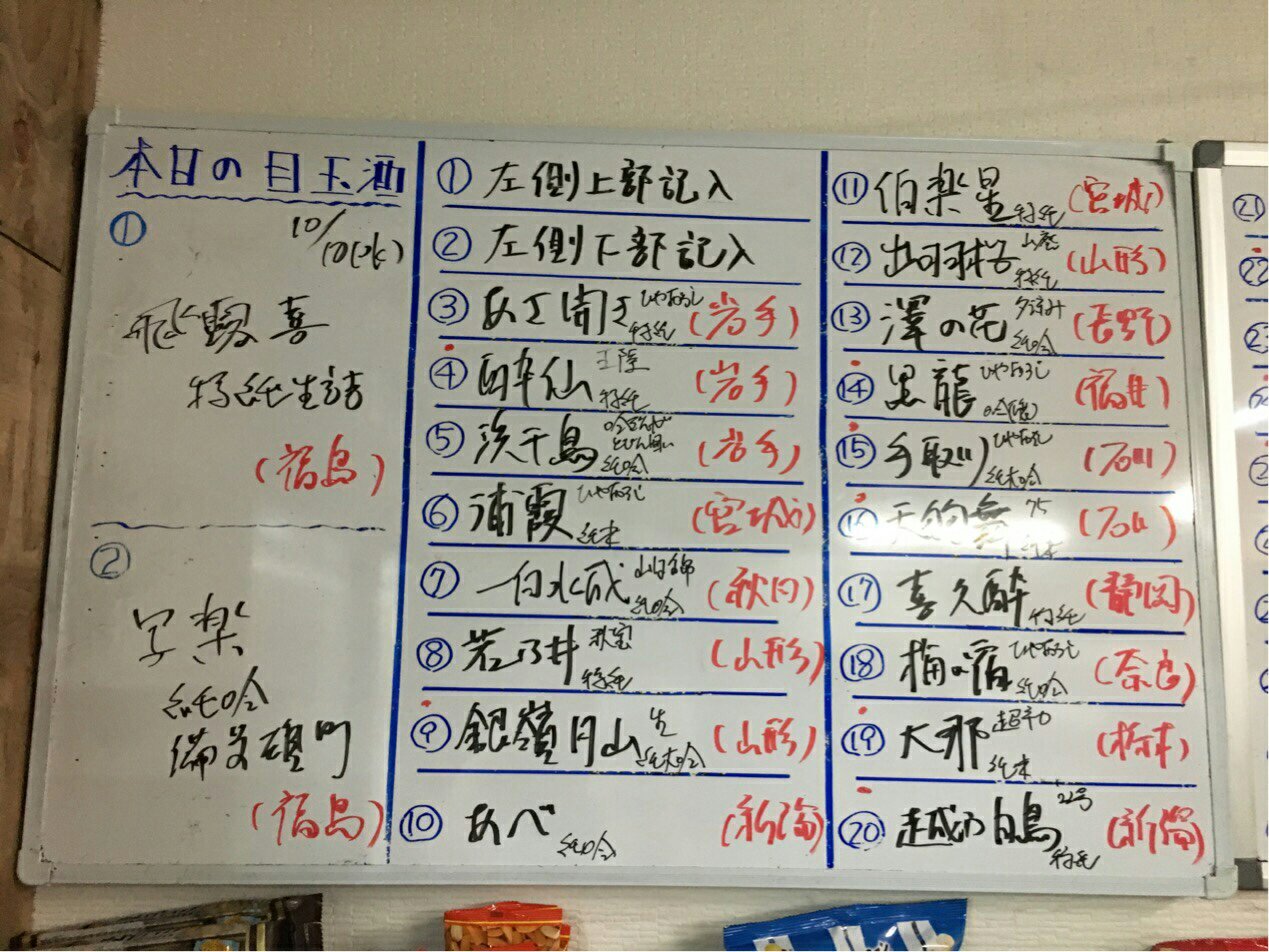 本日の目玉酒
①
10/10(水)
飛露喜
特純生詰
(福島)
②
写楽
純吟
備前雄町
(福島)
① 左側上部記入
② 左側下部記入
③ あさ開き ひやおろし 特純 (岩手)
④ 酔仙 特純 (岩手)
⑤ 浜千鳥 吟ぎんが 純吟 (岩手)
⑥ 浦霞 ひやおろし 純米 (宮城)
⑦ 一白水成 山田錦 純吟 (秋田)
⑧ 若乃井 秋宝 特純 (山形)
⑨ 銀嶺月山 生 純米吟 (山形)
⑩ あべ 純吟 (新潟)
⑪ 伯楽星 特純 (宮城)
⑫ 出羽桜 山廃 特純 (山形)
⑬ 澤の花 夕涼み 純吟 (長野)
⑭ 黒龍 ひやおろし (福井)
⑮ 手取川 ひやおろし 純米吟 (石川)
⑯ 天狗舞 (石川)
⑰ 喜久酔 特純 (静岡)
⑱ 梅の宿 ひやおろし 純吟 (奈良)
⑲ 大那 超辛口 純米 (栃木)
⑳ 越の白鳥 22号 特純 (新潟)
21
22
23